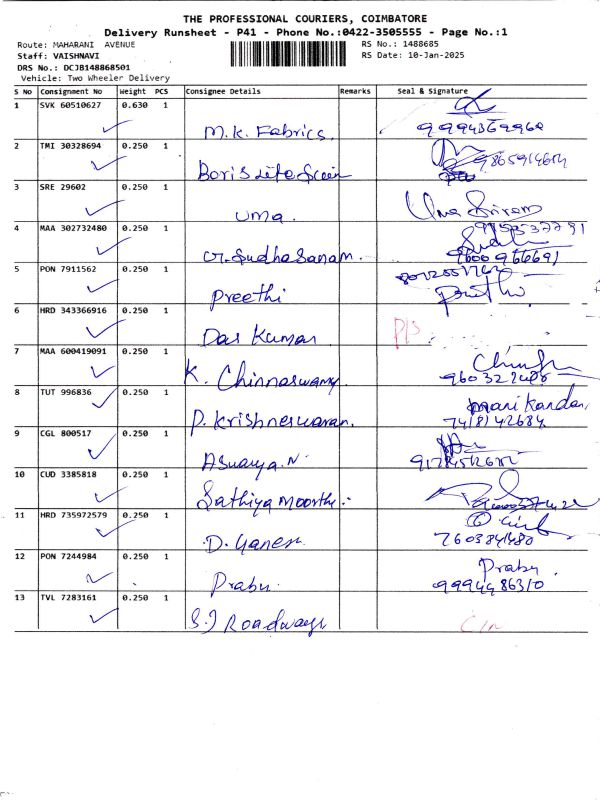 THE PROFESSIONAL COURIERS, COIMBATORE
Delivery Runsheet - P41 - Phone No.:0422-3505555 - Page No.:1
Route: MAHARANI AVENUE
RS No.: 1488685
Staff: VAISHNAVI
RS Date: 10-Jan-2025
DRS No.: DCJB148868501
Vehicle: Two Wheeler Delivery
S No Consignment No Weight PCS Consignee Details Remarks Seal & Signature
1 SVK 60510627 0.630 1
M.K. Fabrics.
2 TMI 30328694 0.250 1
3 SRE 29602 0.250 1
Uma. Uma Sriram
4 MAA 302732480 0.250 1
G. Sudha Sanam.
9600966691
5 PON 7911562 0.250 1
Preethi
6 HRD 343366916 0.250 1
Das Kumar
7 MAA 600419091 0.250 1
K. Chinnaswamy
8 TUT 996836 0.250 1
manikandan
P. Krishneswaran. 7418142684
9 CGL 800517 0.250 1
Aswarya.N
10 CUD 3385818 0.250 1
Sathiya Moorthi
11 HRD 735972579 0.250 1
D. Ganesh
12 PON 7244984 0.250 1
Prabu
Prabu. 9994486310
13 TVL 7283161 0.250 1
S.J Roadways